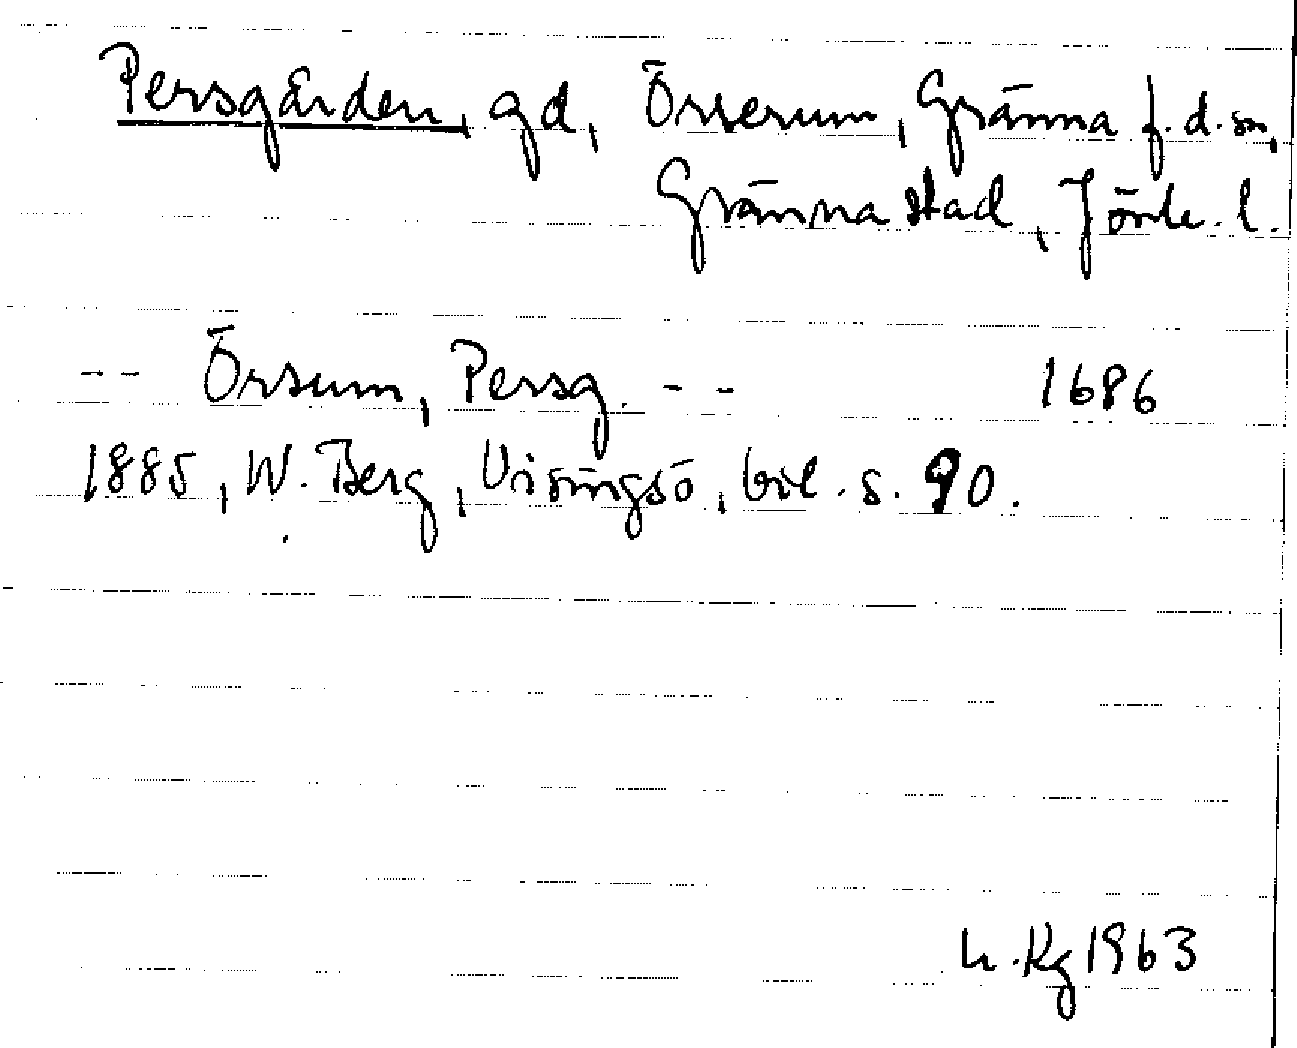 Persgården, gd, Örserum, Gränna f.d. sn,
Gränna stad, Jönk. l.
-- Örsum, Persg. -- 1686
1885, W. Berg, Visingsö, bil. s. 90.
Kg 1963